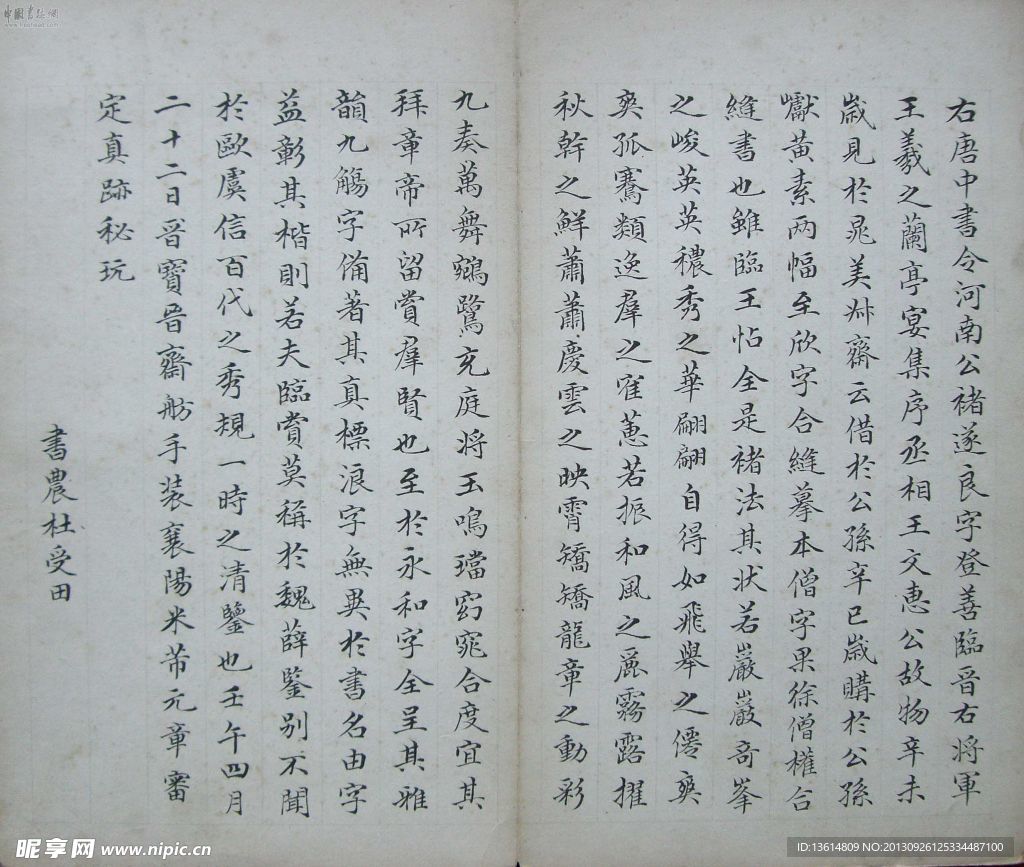 右唐中書令河南公褚遂良字登善臨晉右將軍
王羲之蘭亭宴集序丞相王文惠公故物辛未
歲見於晁美叔齋云借於公孫辛巳歲購於公孫
巘黃素兩幅至欣字合縫摹本僧字果徐僧權合
縫書也雖臨王帖全是褚法其狀若巖巖奇峯
之峻英英穠秀之華翩翩自得如飛舉之僊爽
爽孤騫類逸羣之寉蕙若振和風之麗霧露擢
秋幹之鮮蕭蕭慶雲之映霄矯矯龍章之動彩
九奏萬舞鵷鷺充庭將玉鳴璫窈窕合度宜其
拜章帝所留賞羣賢也至於永和字全呈其雅
韻九觴字備著其真標浪字無異於書名由字
益彰其楷則若夫臨賞莫稱於魏薛鑒別不聞
於歐虞信百代之秀規一時之清鑒也壬午四月
二十二日晉寶晉齋舫手裝襄陽米芾元章審
定真跡秘玩
書農杜受田
中國書法網
昵享网 www.nipic.cn
ID:13614809 NO:20130926125334487100